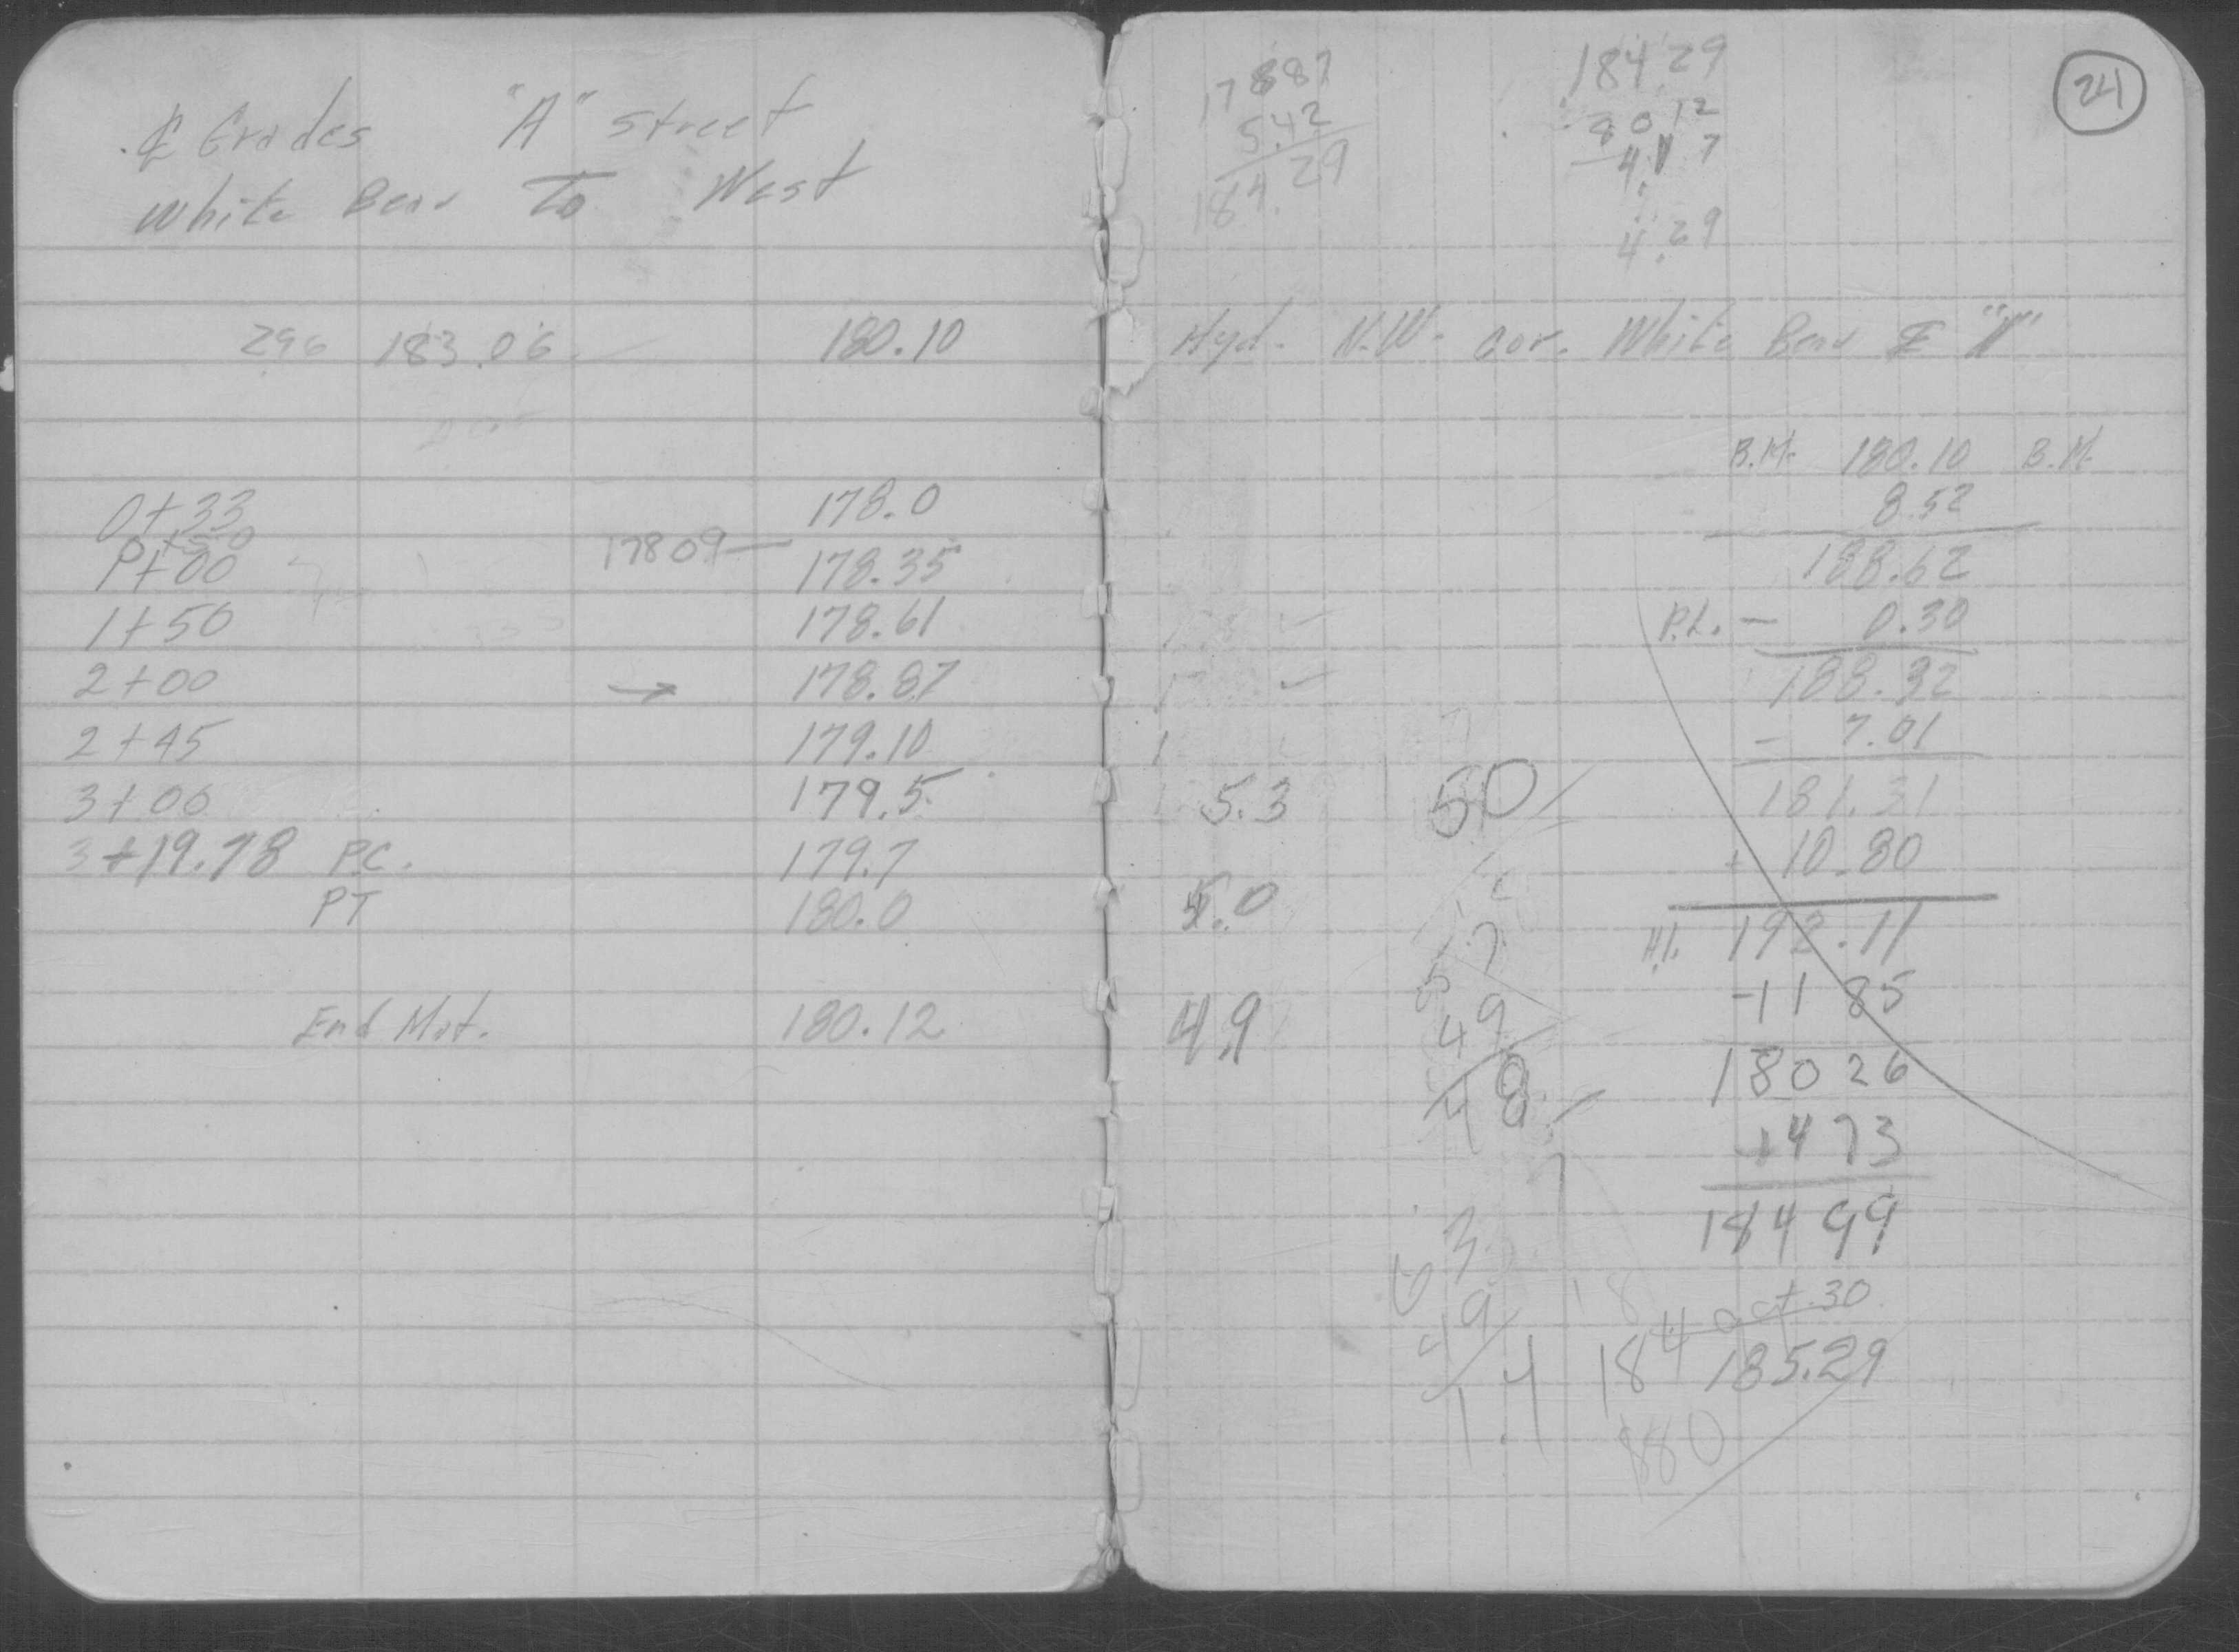 ℄ Grades "A" Street
White Bear To West
296 183.06 180.10
0+33 178.0
+50
1+00 17809— 178.35
1+50 178.61
2+00 → 178.87
2+45 179.10
3+00 179.5
3+19.78 P.C. 179.7
PT 180.0
End Mat. 180.12
24
17887
5.42
184.29
184.29
8012
4.17
4.29
Hyd. N.W. cor. White Bear & "A"
B.M. 180.10 B.M.
8.52
188.62
P.L. — 0.30
188.32
- 7.01
181.31
+ 10.80
H.I. 192.11
-11 85
180 26
+4 73
184 99
oct. 30
184 185.29
180
5.3 50
5.0
5.7
4.9 49
48
63
49
1.4